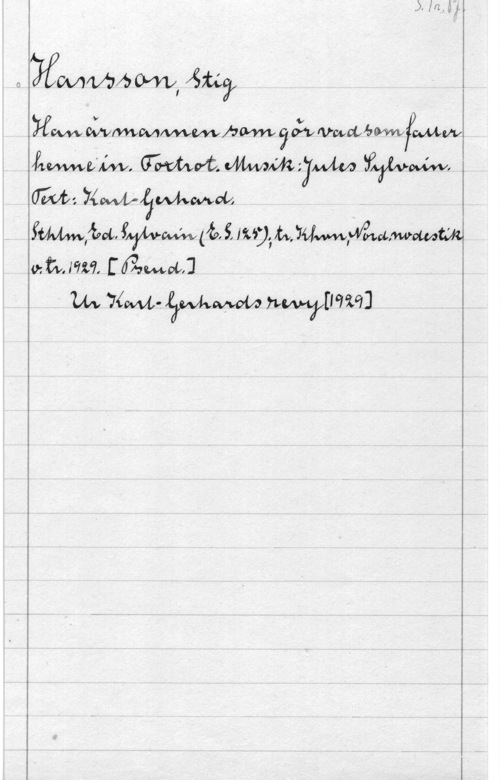 S. Tr. Pf.
Hansson, Stig
Han är mannen som gör vad som faller
henne in. Foxtrot. Musik: Jules Sylvain.
Text: Karl-Gerhard.
Sthlm, Ed. Sylvain (E.S. 125); tr. Khvn, Nord. nodestik
o. tr. 1929. [Pseud.]
Ur Karl-Gerhards revy [1929]